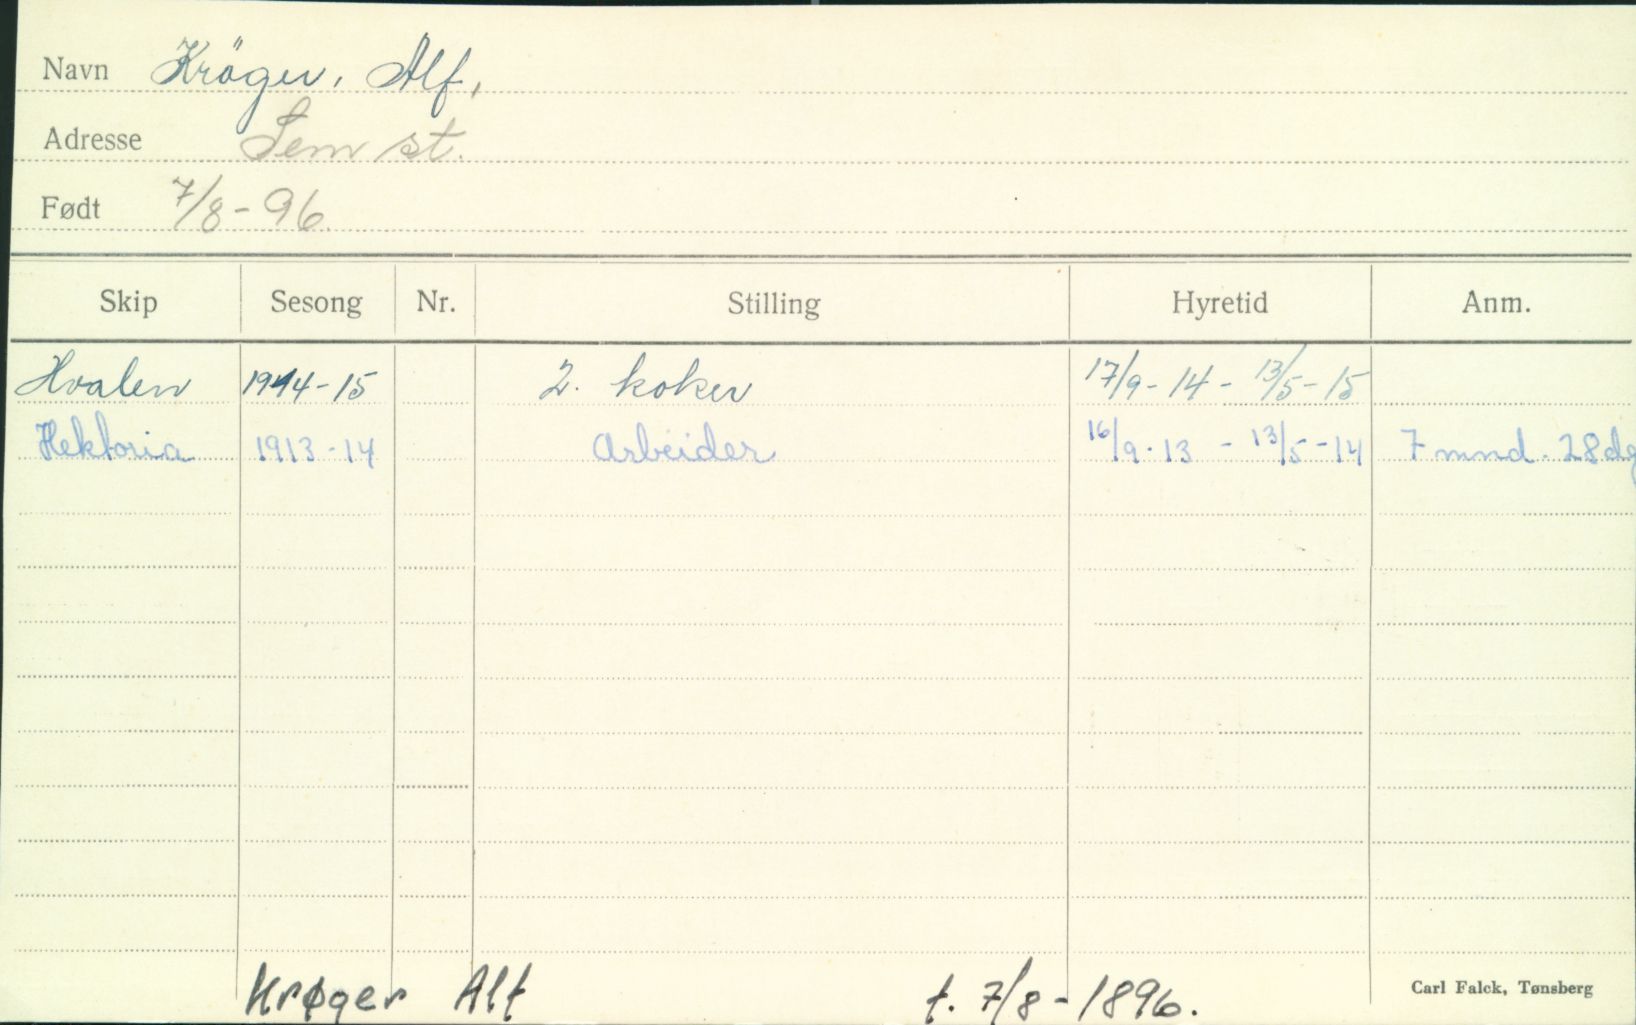 Navn Kröger, Alf,
Adresse Sem st.
Født 7/8-96.
Skip Sesong Nr. Stilling Hyretid Anm.
Hvalen 1914-15 2. koker 17/9-14 - 13/5-15
Hektoria 1913-14 Arbeider 16/9.13 - 13/5-14 7 mnd. 28dg
Krøger Alf f. 7/8-1896.
Carl Falck, Tønsberg